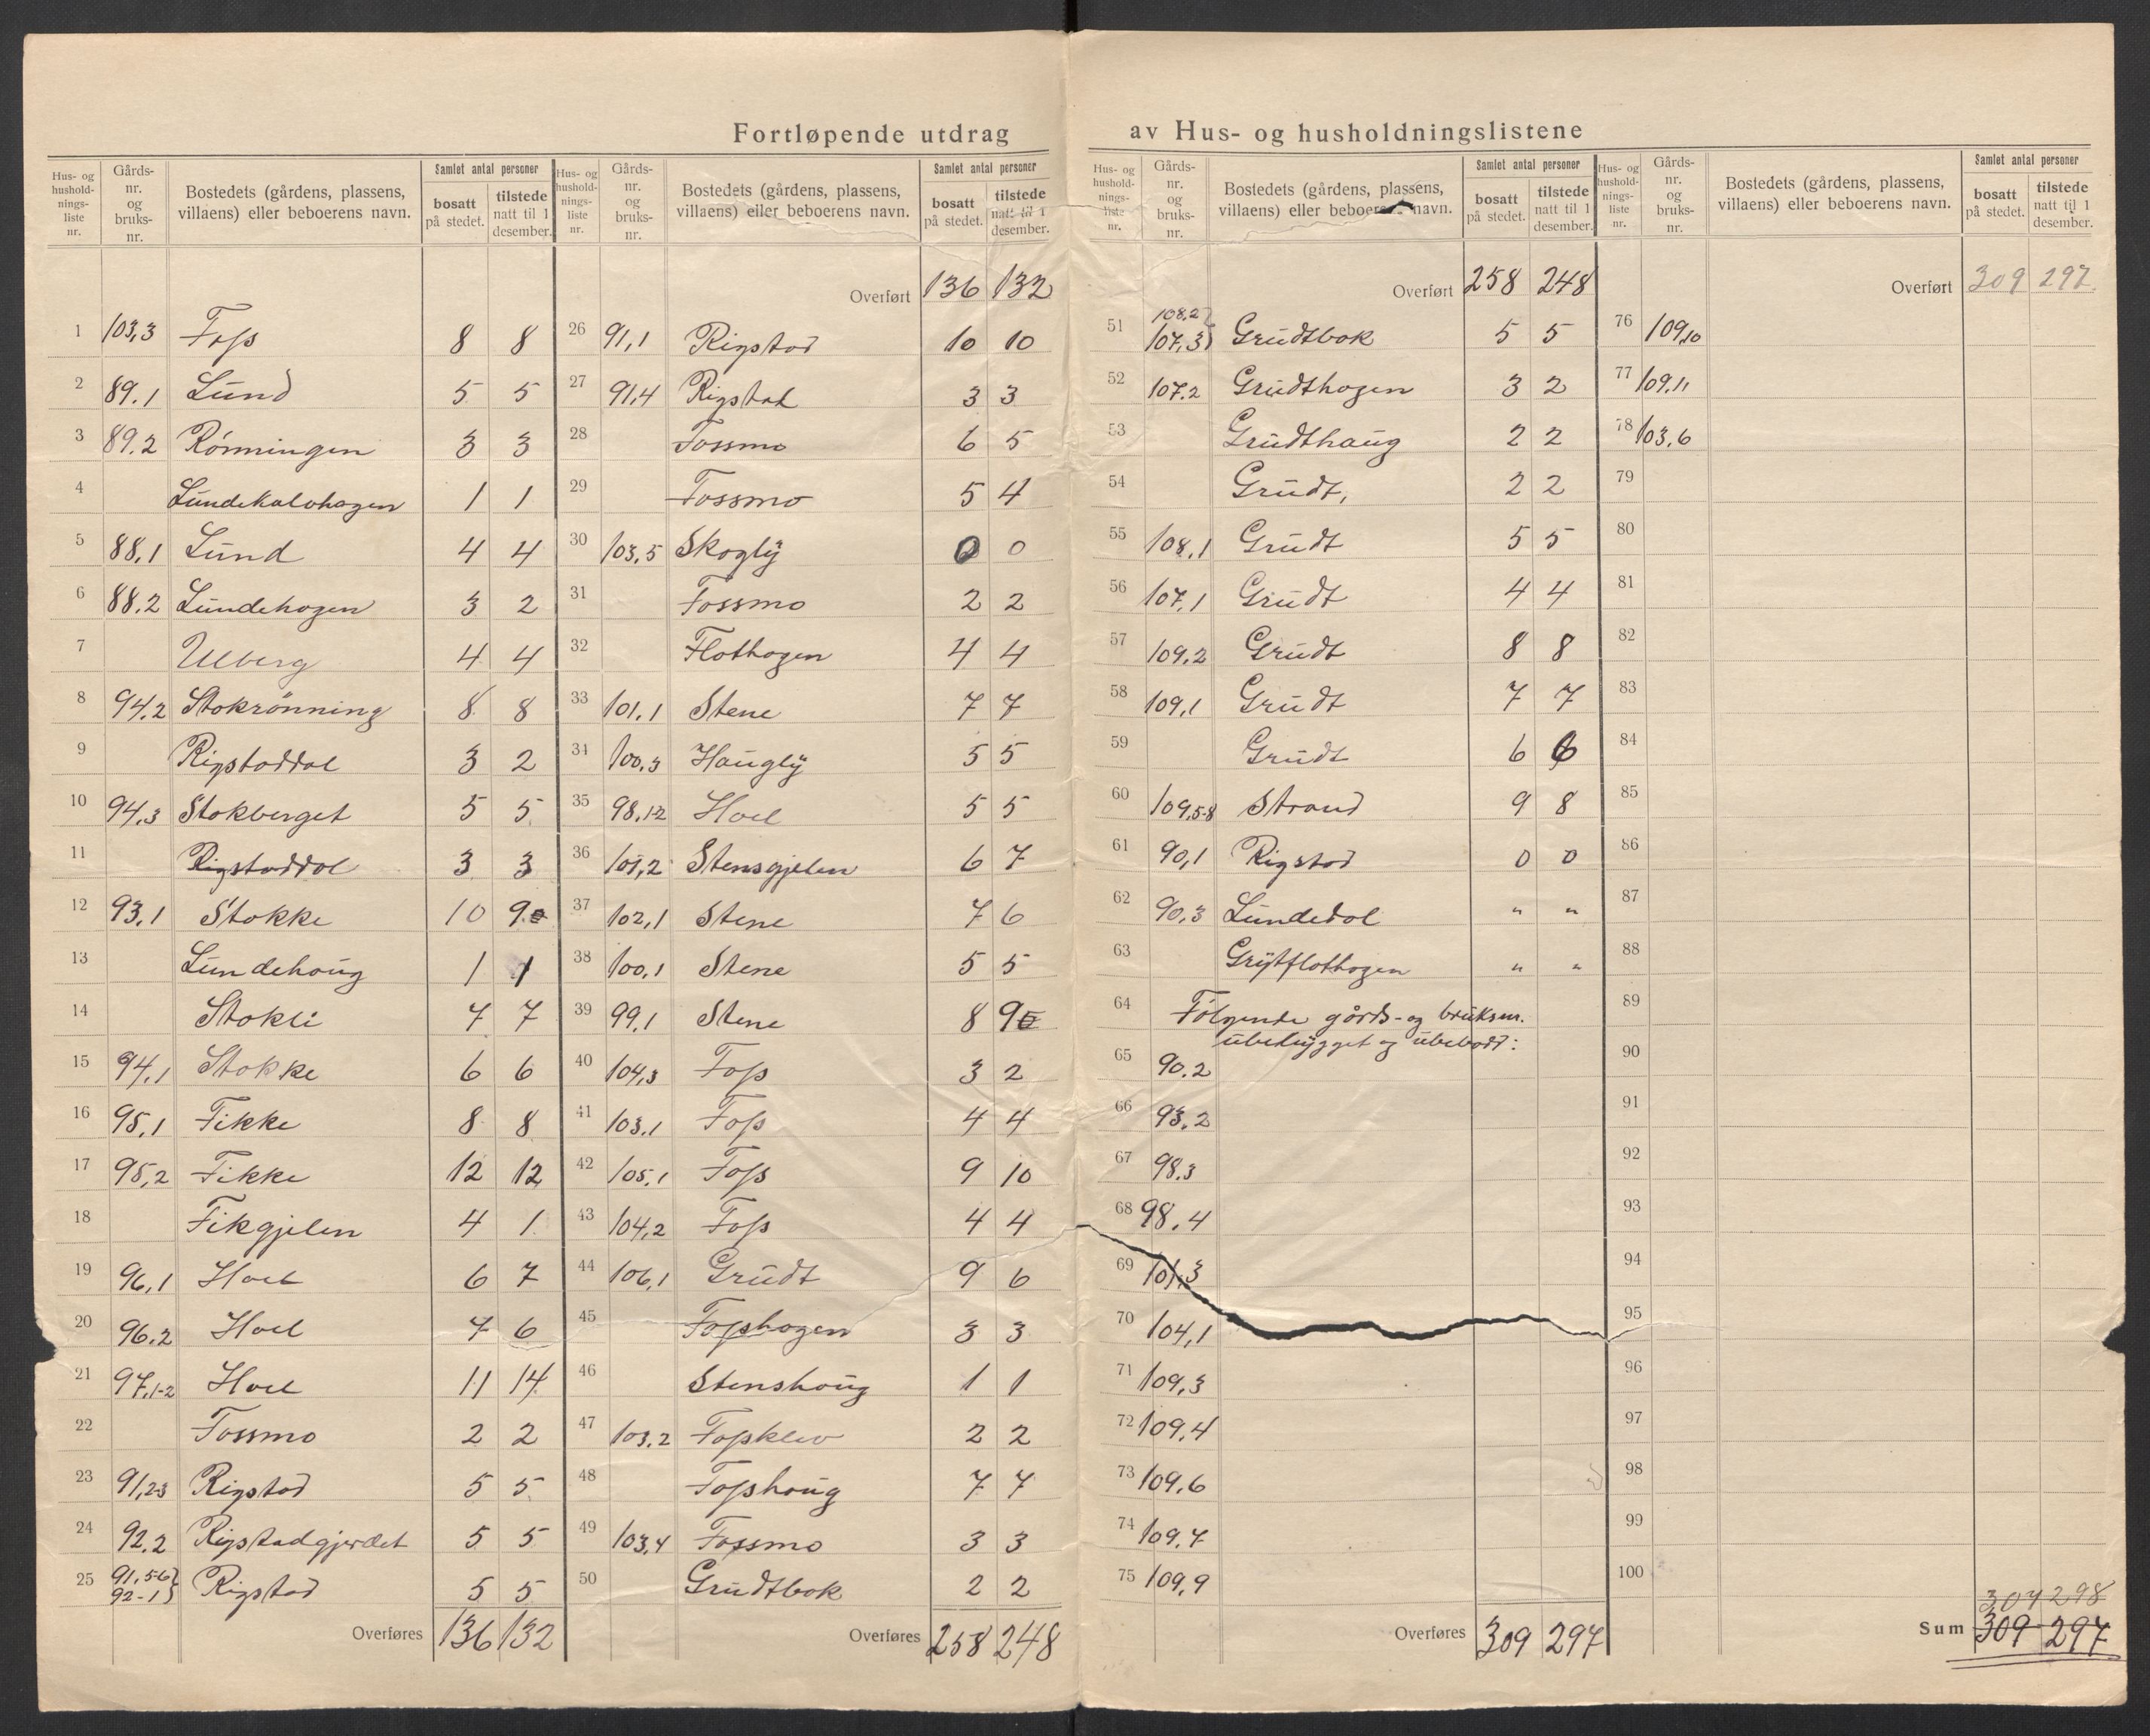 Fortløpende utdrag av Hus- og husholdningslistene
Hus- og hushold-nings-liste nr. | Gårds-nr. og bruks-nr. | Bostedets (gårdens, plassens, villaens) eller beboerens navn. | Samlet antal personer | bosatt på stedet. | tilstede natt til 1 desember.
1 103,3 Foss 8 8
2 89.1 Lund 5 5
3 89.2 Rönningen 3 3
4 Lundekalvhagen 1 1
5 88,1 Lund 4 4
6 88.2 Lundehagen 3 2
7 Ulberg 4 4
8 94.2 Stokrönning 8 8
9 Rigstaddal 3 2
10 94,3 Stokberget 5 5
11 Rigstaddal 3 3
12 93.1 Stokke 10 9
13 Lundehaug 1 1
14 Stokli 7 7
15 94,1 Stokke 6 6
16 95,1 Fikke 8 8
17 95,2 Fikke 12 12
18 Fikgjelen 4 1
19 96,1 Hoel 6 7
20 96.2 Hoel 7 6
21 97,1-2 Hoel 11 14
22 Fossmo 2 2
23 91,2-3 Rigstad 5 5
24 92.2 Rigstadgjerdet 5 5
25 91,56} 92-1} Rigstad 5 5
Overføres 136 132
Hus- og hushold-nings-liste nr. | Gårds-nr. og bruks-nr. | Bostedets (gårdens, plassens, villaens) eller beboerens navn. | Samlet antal personer | bosatt på stedet. | tilstede natt til 1 desember.
Overført 136 132
26 91,1 Rigstad 10 10
27 91,4 Rigstad 3 3
28 Fossmo 6 5
29 Fossmo 5 4
30 103,5 Skogly 0 0
31 Fossmo 2 2
32 Flothagen 4 4
33 101.1 Stene 7 7
34 100,3 Haugly 5 5
35 98,1-2 Hoel 5 5
36 101,2 Stensgjelen 6 7
37 102,1 Stene 7 6
38 100,1 Stene 5 5
39 99,1 Stene 8 9
40 104,3 Foss 3 2
41 103,1 Foss 4 4
42 105,1 Foss 9 10
43 104,2 Foss 4 4
44 106,1 Grudt 9 6
45 Fosshagen 3 3
46 Stenshaug 1 1
47 103,2 Fossklev 2 2
48 Fosshaug 7 7
49 103,4 Fossmo 3 3
50 Grudtbak 2 2
Overføres 258 248
Hus- og hushold-nings-liste nr. | Gårds-nr. og bruks-nr. | Bostedets (gårdens, plassens, villaens) eller beboerens navn. | Samlet antal personer | bosatt på stedet. | tilstede natt til 1 desember.
Overført 258 248
51 108,2} 107,3} Grudtbak 5 5
52 107.2 Grudthagen 3 2
53 Grudthaug 2 2
54 Grudt, 2 2
55 108,1 Grudt 5 5
56 107,1 Grudt 4 4
57 109.2 Grudt 8 8
58 109,1 Grudt 7 7
59 Grudt 6 6
60 109,5-8 Strand 9 8
61 90,1 Rigstad 0 0
62 90,3 Lundedal " "
63 Grytflothagen " "
64 Følgende gårds- og bruksnr.
ubebygget og ubebodd:
65 90.2
66 93.2
67 98.3
68 98.4
69 101,3
70 104,1
71 109,3
72 109,4
73 109,6
74 109,7
75 109,9
Overføres 309 297
Hus- og hushold-nings-liste nr. | Gårds-nr. og bruks-nr. | Bostedets (gårdens, plassens, villaens) eller beboerens navn. | Samlet antal personer | bosatt på stedet. | tilstede natt til 1 desember.
Overført 309 297
76 109,10
77 109,11
78 103,6
79
80
81
82
83
84
85
86
87
88
89
90
91
92
93
94
95
96
97
98
99
100
307 298
Sum 309 297